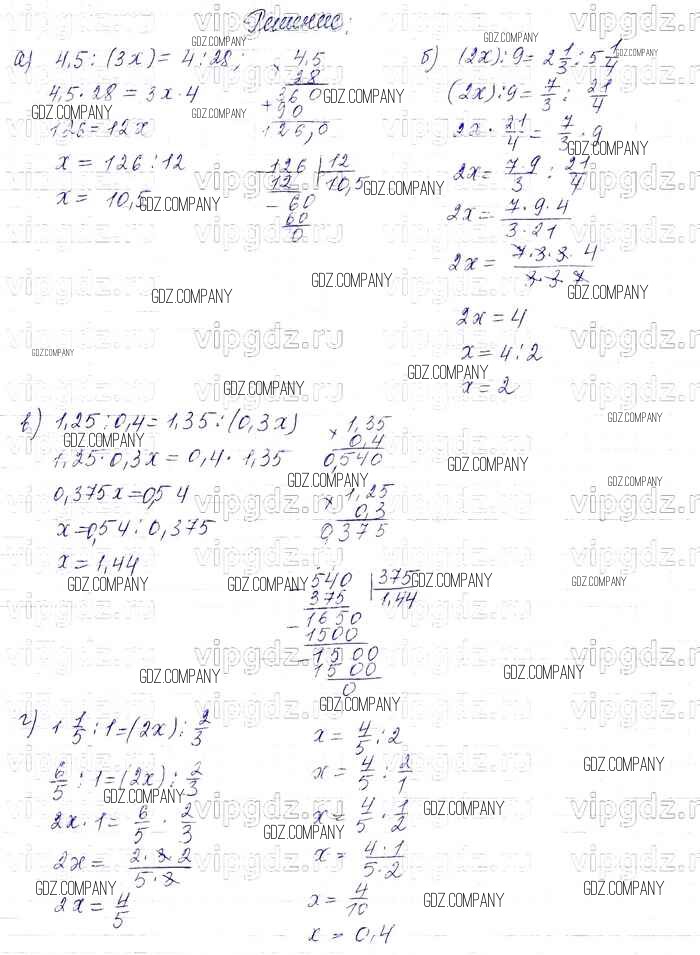 Решение:
а) 4,5 : (3x) = 4 : 28;
4,5 · 28 = 3x · 4
126 = 12x
x = 126 : 12
x = 10,5
× 4,5
28
360
+ 90
126,0
- 126 | 12
12 10,5
- 60
60
0
б) (2x) : 9 = 2 1/3 : 5 1/4
(2x) : 9 = 7/3 : 21/4
2x · 21/4 = 7/3 · 9
2x = 7·9/3 : 21/4
2x = 7·9·4/3·21
2x = 7·3·3·4/3·3·7
2x = 4
x = 4 : 2
x = 2
в) 1,25 : 0,4 = 1,35 : (0,3x)
1,25 · 0,3x = 0,4 · 1,35
0,375x = 0,54
x = 0,54 : 0,375
x = 1,44
× 1,35
0,4
0,540
× 1,25
0,3
0,375
- 540 | 375
375 1,44
- 1650
1500
- 1500
1500
0
г) 1 1/5 : 1 = (2x) : 2/3
6/5 : 1 = (2x) : 2/3
2x · 1 = 6/5 · 2/3
2x = 2·3·2/5·3
2x = 4/5
x = 4/5 : 2
x = 4/5 : 2/1
x = 4/5 · 1/2
x = 4·1/5·2
x = 4/10
x = 0,4
GDZ.COMPANY
vipgdz.ru